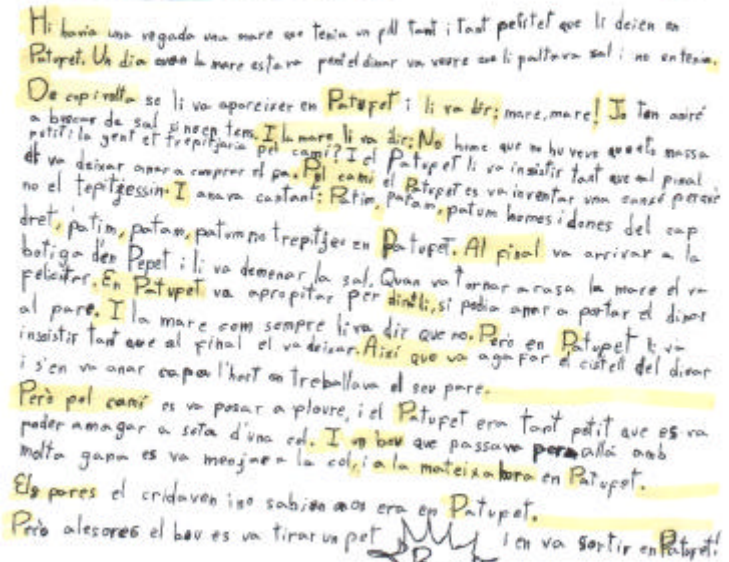 Hi havia una vegada una mare que tenia un fill tant i tant petitet que li deien en
Patufet. Un dia quan la mare estava fent el dinar va veure que li faltava sal i no en tenia.
De cop i volta se li va apareixer en Patufet i li va dir; mare, mare! Jo ten aniré
a buscar de sal si no en tens. I la mare li va dir: No home que no hu veus que ets massa
petit i la gent et trepitjaria pel camí? I el Patufet li va insistir tant que al final
et va deixar anar a comprar el pa. Pel camí el Patufet es va inventar una cançó perquè
no el tepitgessin. I anava cantant: Patim, patam, patum homes i dones del cap
dret, patim, patam, patum no trepitjeu en Patufet. Al final va arrivar a la
botiga d'en Pepet i li va demenar la sal. Quan va tornar a casa la mare el va
felicitar. En Patufet va apropitar per dirli, si podia anar a portar el dinar
al pare. I la mare com sempre li va dir que no. Però en Patufet li va
inssistir tant que al final el va deixar. Aixi que va agafar el cistell del dinar
i s'en va anar cap a l'hort on treballava el seu pare.
Però pel camí es va posar a ploure, i el Patufet era tant petit que es va
poder amagar a sota d'una col. I un bou que passava per allà amb
molta gana es va menjar a la col, i a la mateixa hora en Patufet.
Els pares el cridaven i no sabien on era en Patufet.
Però alesores el bou es va tirar un pet i en va sortir en Patufet!